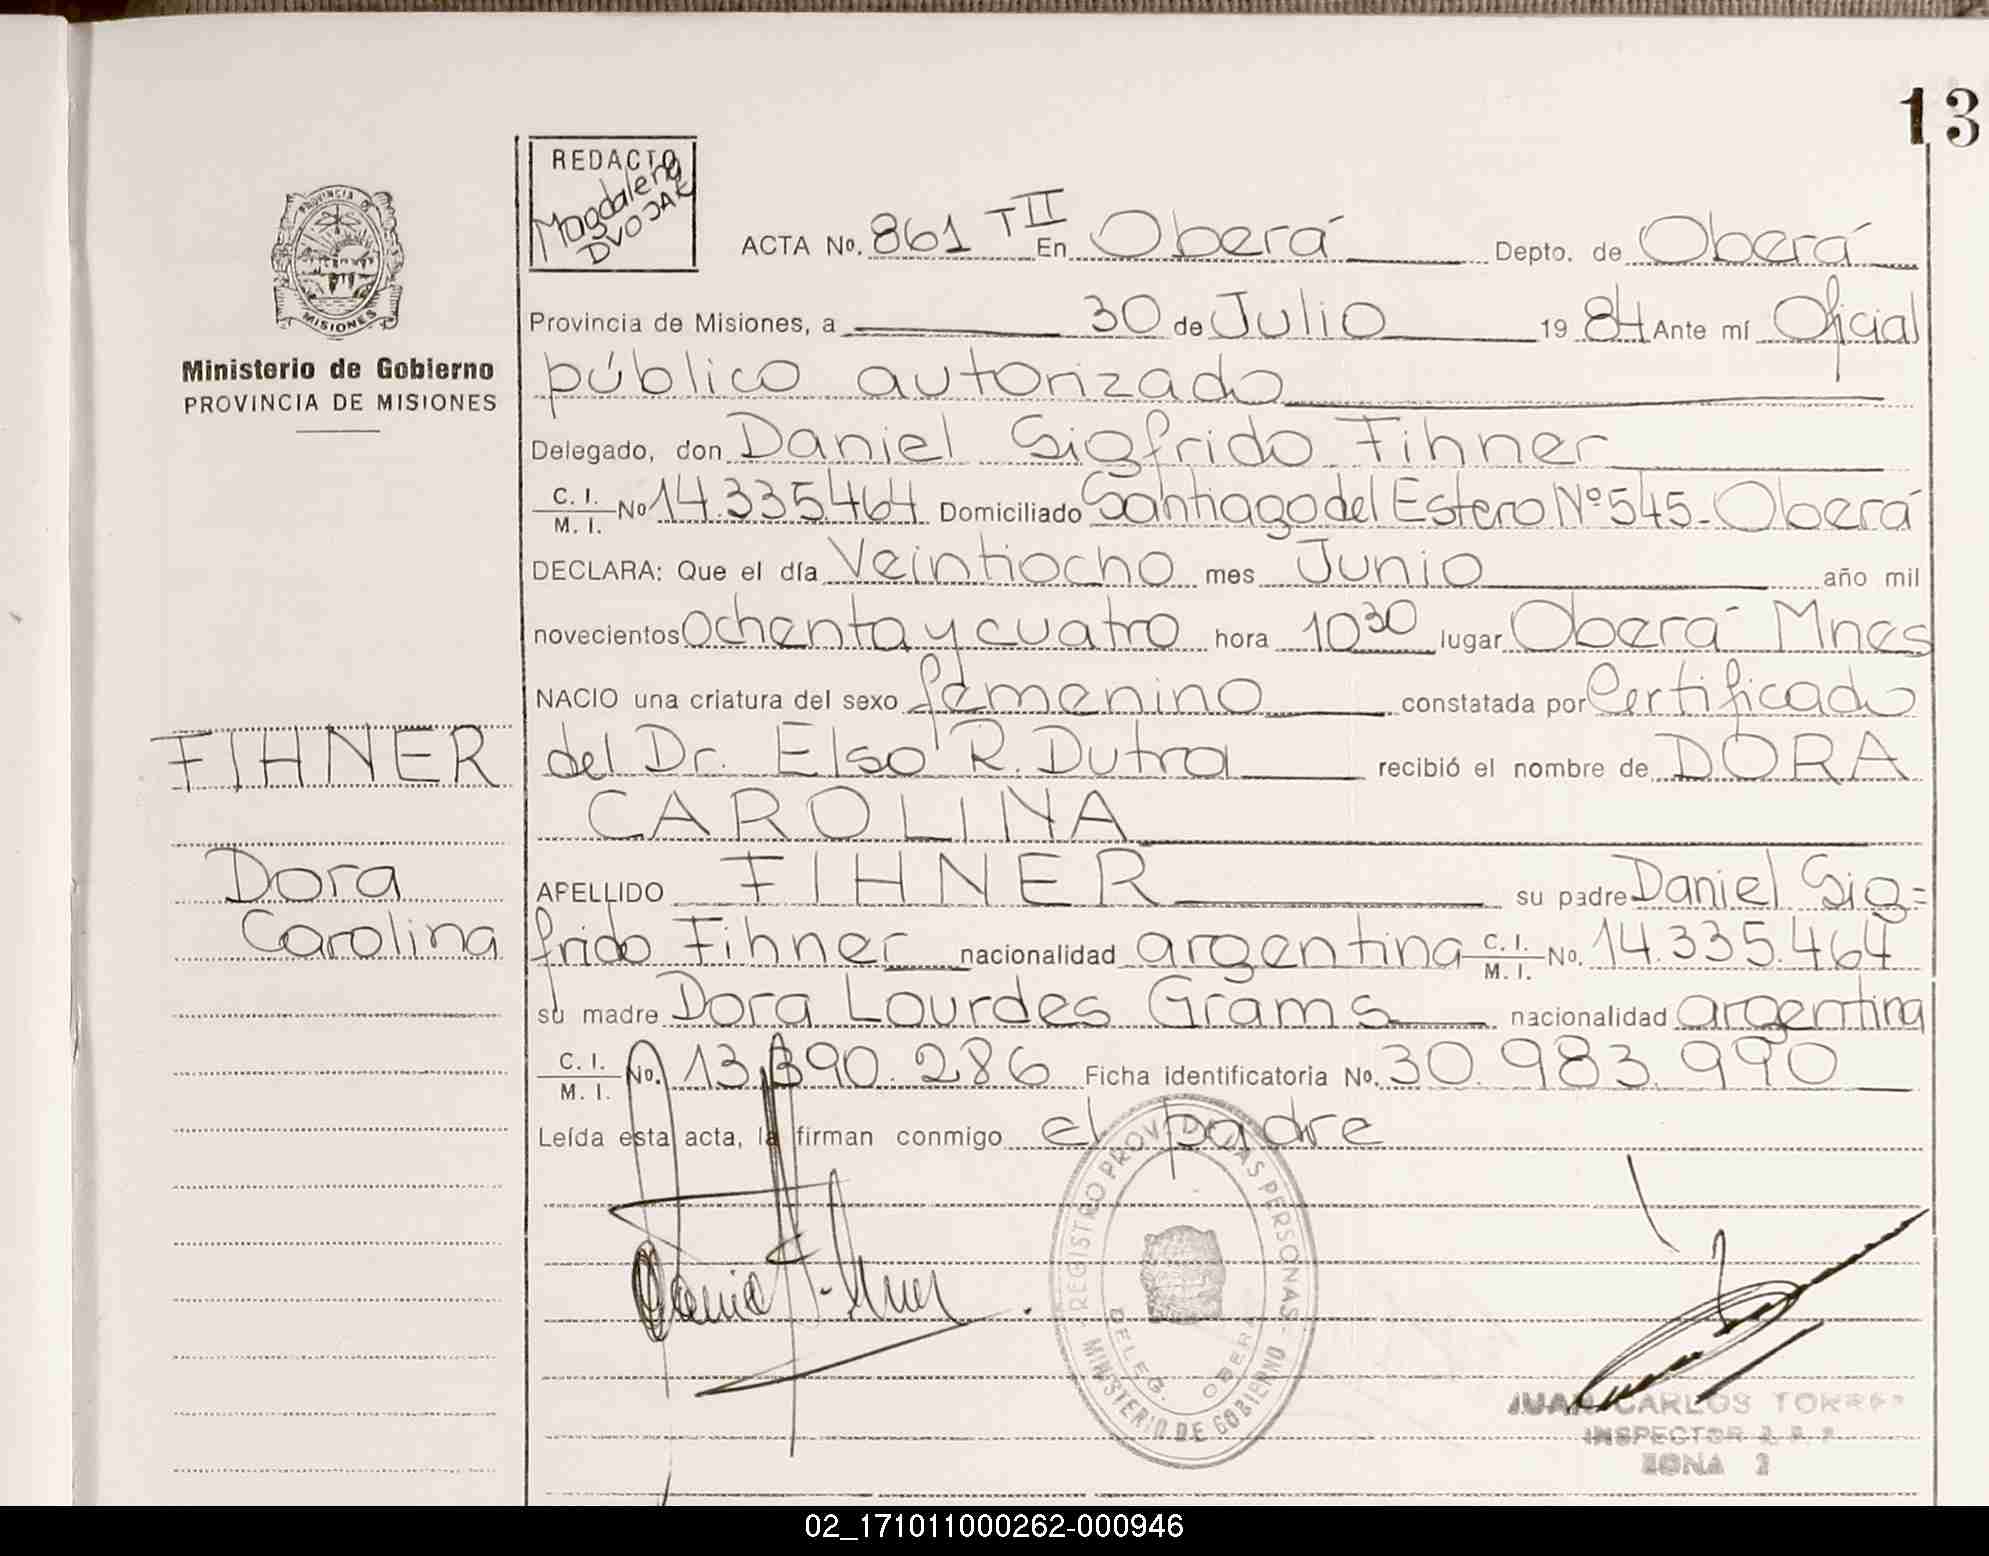 13
REDACTO
Magdalena
DVOJAK
PROVINCIA DE
MISIONES
Ministerio de Gobierno
PROVINCIA DE MISIONES
ACTA No. 861 TII En Oberá Depto. de Oberá
Provincia de Misiones, a 30 de Julio 19 84 Ante mí Oficial
público autorizado
Delegado, don Daniel Sigfrido Fihner
C. I. / M. I. No 14.335.464 Domiciliado Santiago del Estero Nº 545- Oberá
DECLARA: Que el día Veintiocho mes Junio año mil
novecientos ochenta y cuatro hora 10 30 lugar Oberá Mnes
NACIO una criatura del sexo femenino constatada por Certificado
FIHNER
del Dr. Elso R. Dutra recibió el nombre de DORA
CAROLINA
Dora
APELLIDO FIHNER su padre Daniel Sig=
Carolina
frido Fihner nacionalidad argentina C. I. / M. I. No. 14.335.464
su madre Dora Lourdes Grams nacionalidad argentina
C. I. / M. I. No. 13.390.286 Ficha identificatoria No. 30.983.990
Leída esta acta, la firman conmigo el padre
REGISTRO PROV. DE LAS PERSONAS
MINISTERIO DE GOBIERNO
DELEG. OBERA
JUAN CARLOS TORRES
INSPECTOR
ZONA 2
02_171011000262-000946